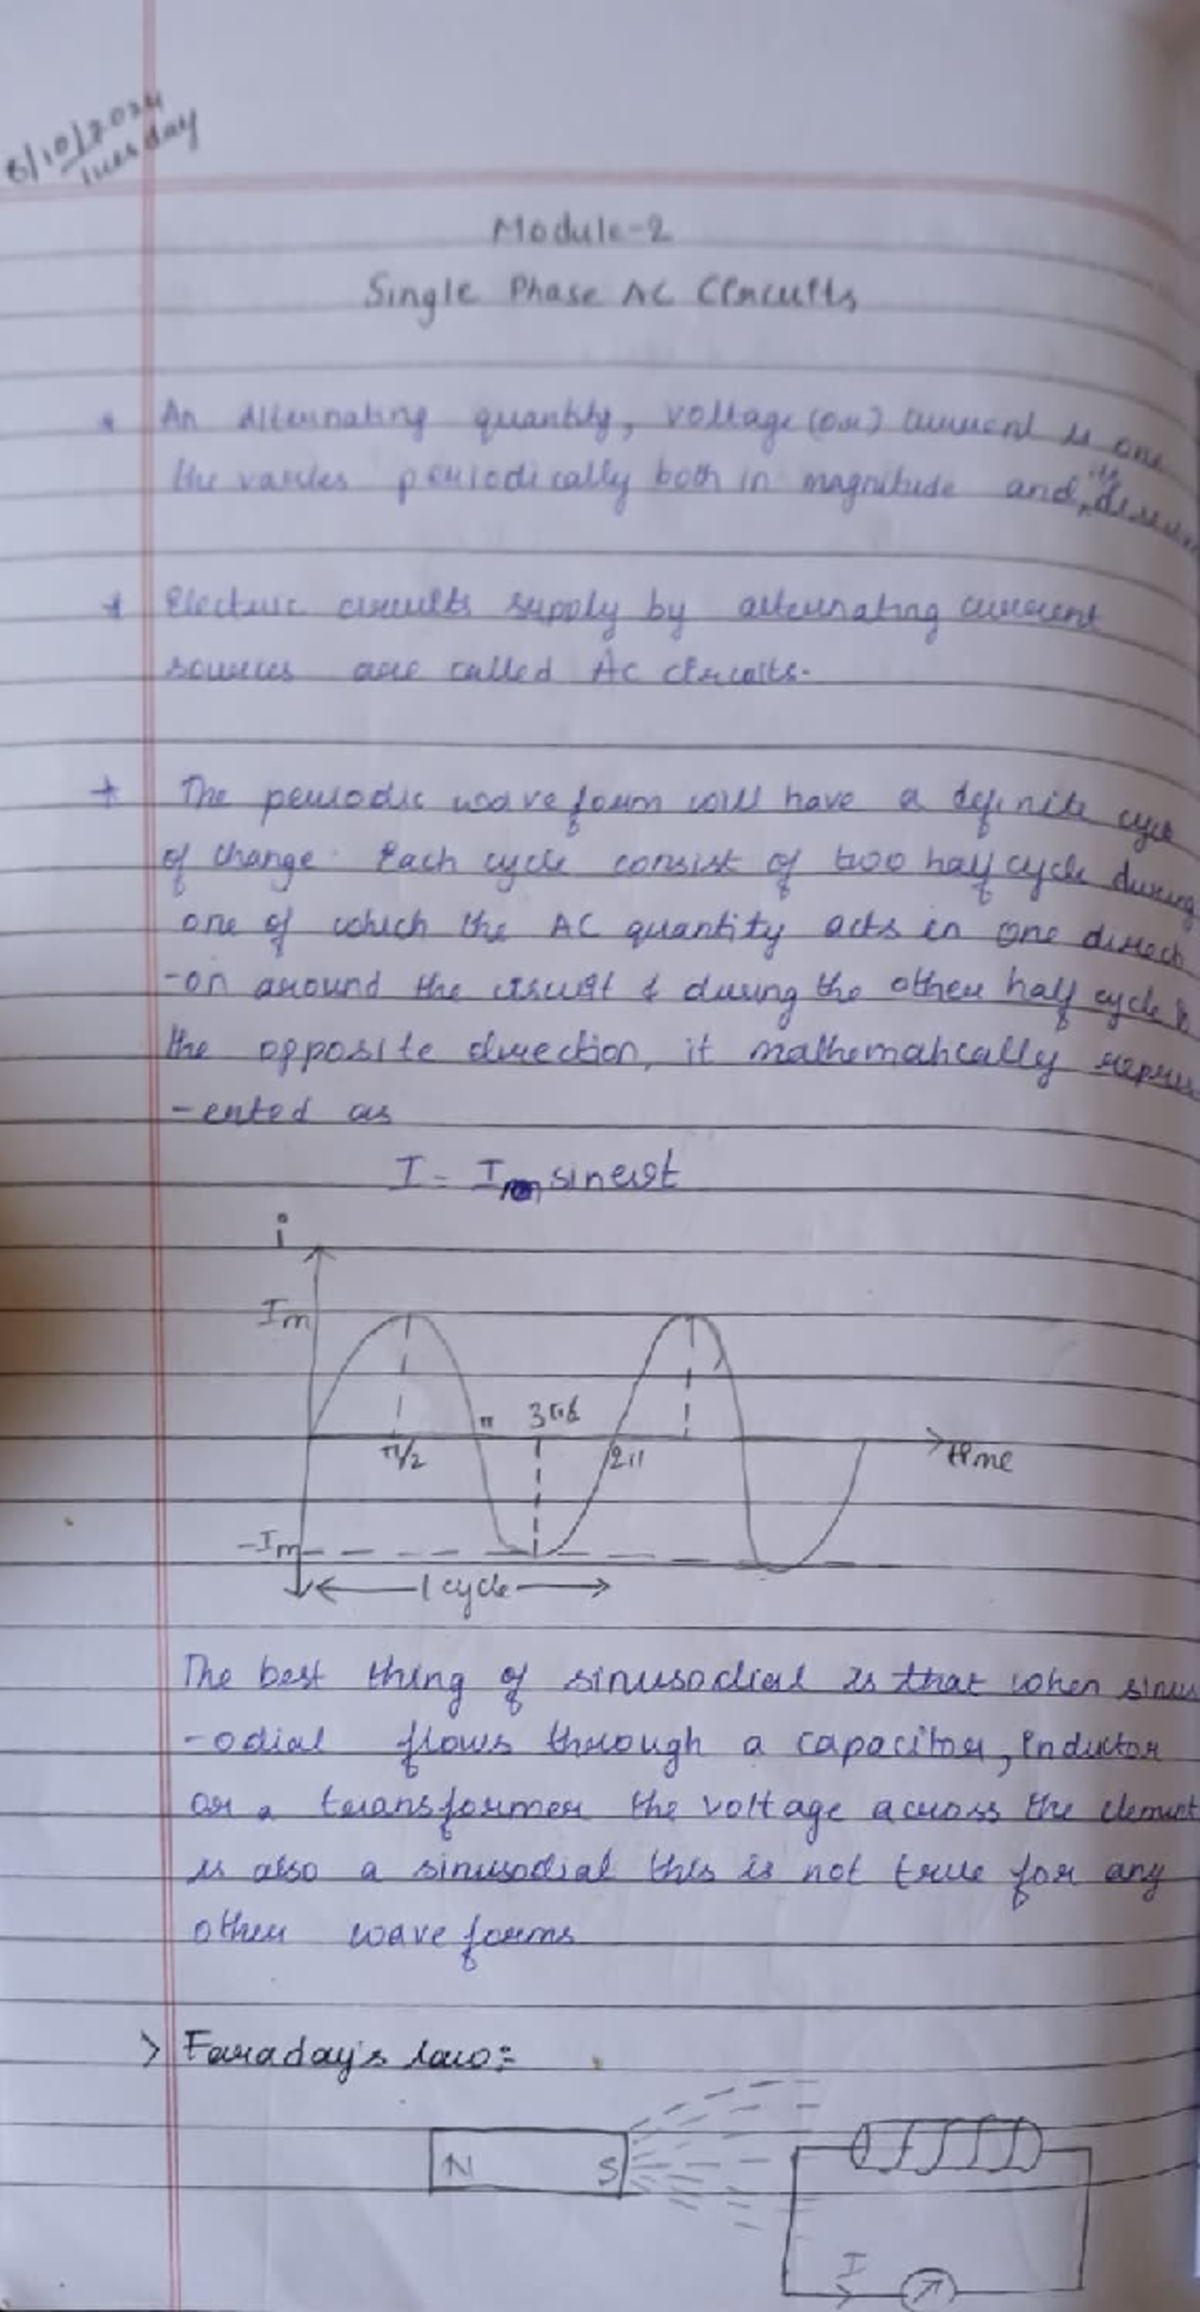 8/10/2024
Tuesday
Module-2
Single Phase AC Circuits
* An Alternating quantity, voltage (or) current is one
the varies periodically both in magnitude and its
* Electric circuits supply by alternating current
sources are called Ac circuits.
* The periodic wave form will have a definite cycle
of change. Each cycle consist of two half cycle during
one of which the AC quantity acts in one direct
-on around the circuit & during the other half cycle
the opposite direction, it mathematically repres
-ented as
I = Im sinωt
i
Im
π
π/2
2π
time
-Im
1 cycle
The best thing of sinusodial is that when sinus
-odial flows through a capacitor, inductor
or a transformer the voltage across the element
is also a sinusodial this is not true for any
other wave forms
> Faraday's law:
N S
I